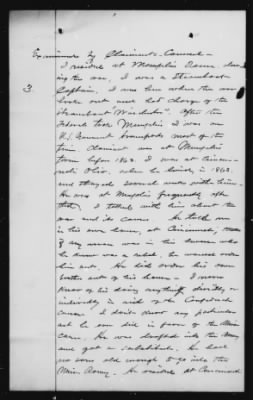 Examined by Claimants Counsel –
I resided at Memphis Tenn. dur-
ing the war, I was a Steamboat
3 Captain, I was here when the war
broke out and had charge of the
Steamboat " After the
Federals took Memphis I was on
U.S. transports most of the
time. Claimant was at Memphis
Tenn before 1862. I was at Cincin-
nati Ohio, when he lived, in 1863.
and stayed several weeks with him.
He was at Memphis frequently after
that, I talked with him about the
war and its causes. He told me
in his own house, at Cincinnati, that
if any man was in his house who
he knew was a rebel, he would order
him out. He did order his own
brother out of his house – I never
knew of his doing anything directly or
indirectly in aid of the Confederate
cause. I don't know any particular
act he ever did in favor of the Union
cause. He was drafted into the Army
and got a substitute. He had
no sons old enough to go into the
Union Army. He resided at Cincinnati